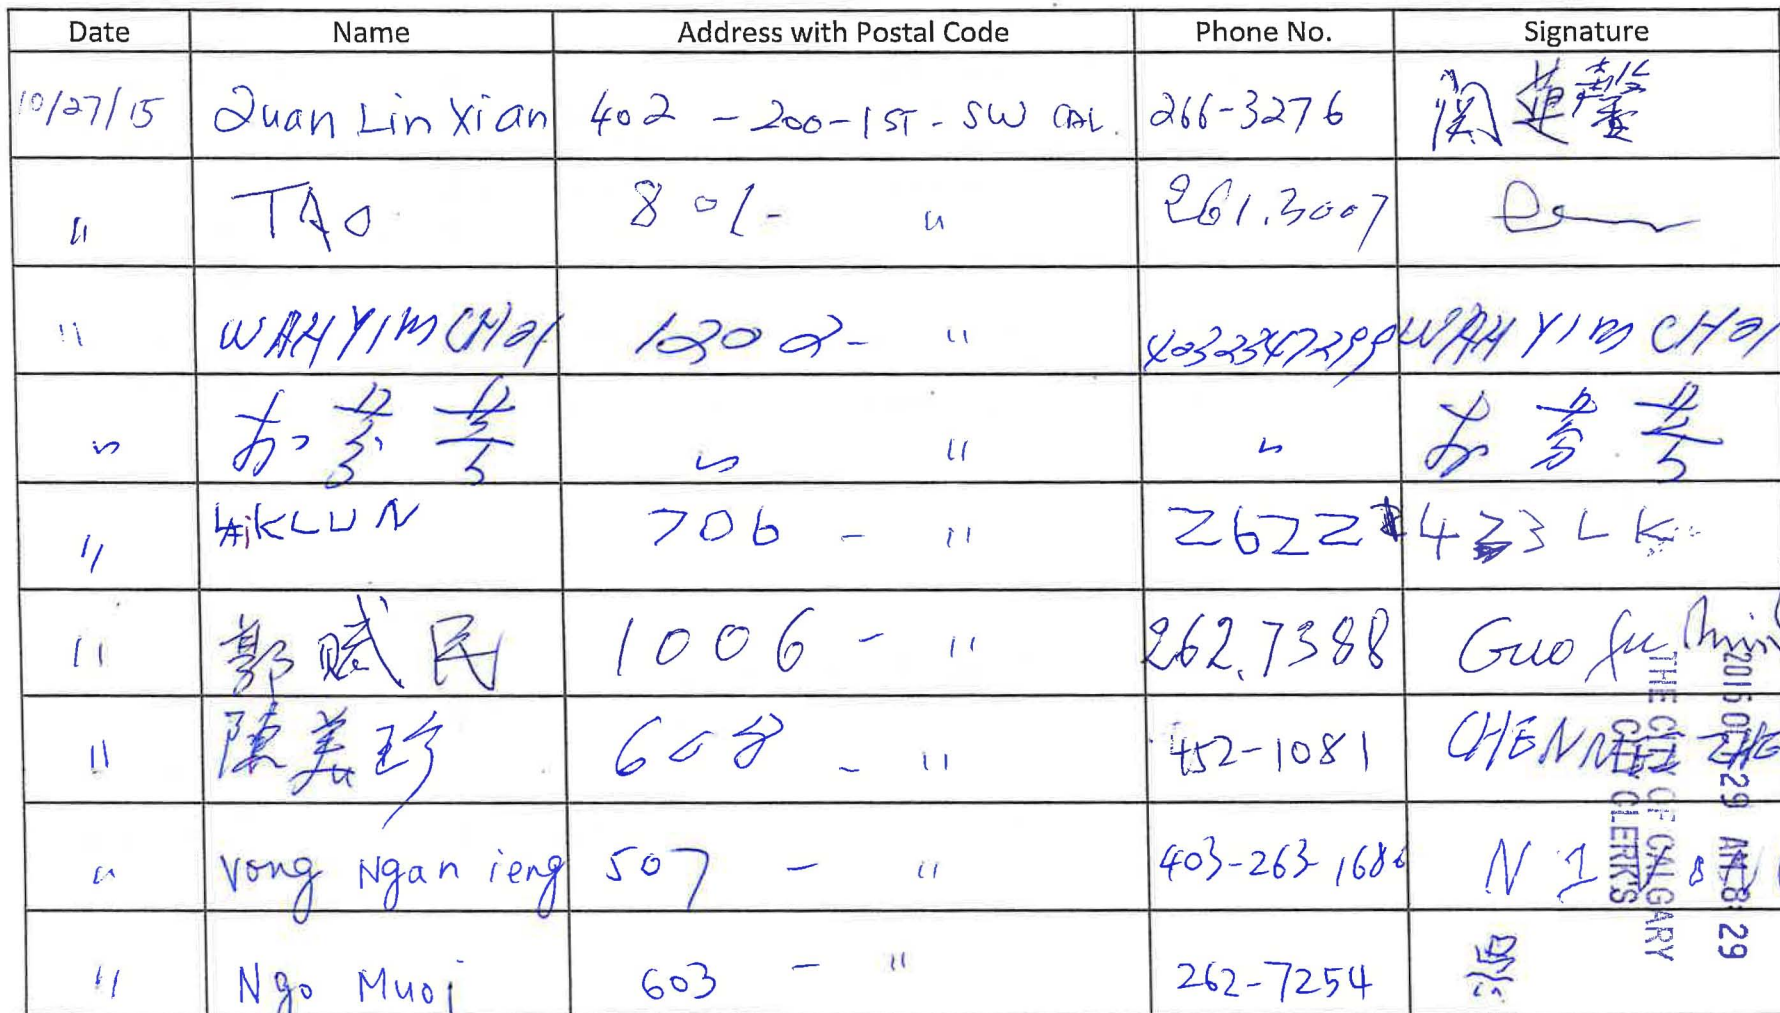 Date Name Address with Postal Code Phone No. Signature
10/27/15 Quan Lin Xian 402 - 200 - 1 ST - SW CAL. 266-3276 關蓮馨
" TAO 801- " 261.3007
" WAH YIM CHOI 1202- " 4032347299 WAH YIM CHOI
" " " "
" LAiKLUN 706 - " 2622 423 L K
" 鄭赋民 1006 - " 262.7388 Guo fu Min
" 陳美珍 608 - " 452-1081 CHEN MEI ZHE
" Vong Ngan ieng 507 - " 403-263-1686
" Ngo Muoi 603 - " 262-7254
2015 OCT 29 AM 8:29
THE CITY OF CALGARY
CITY CLERK'S